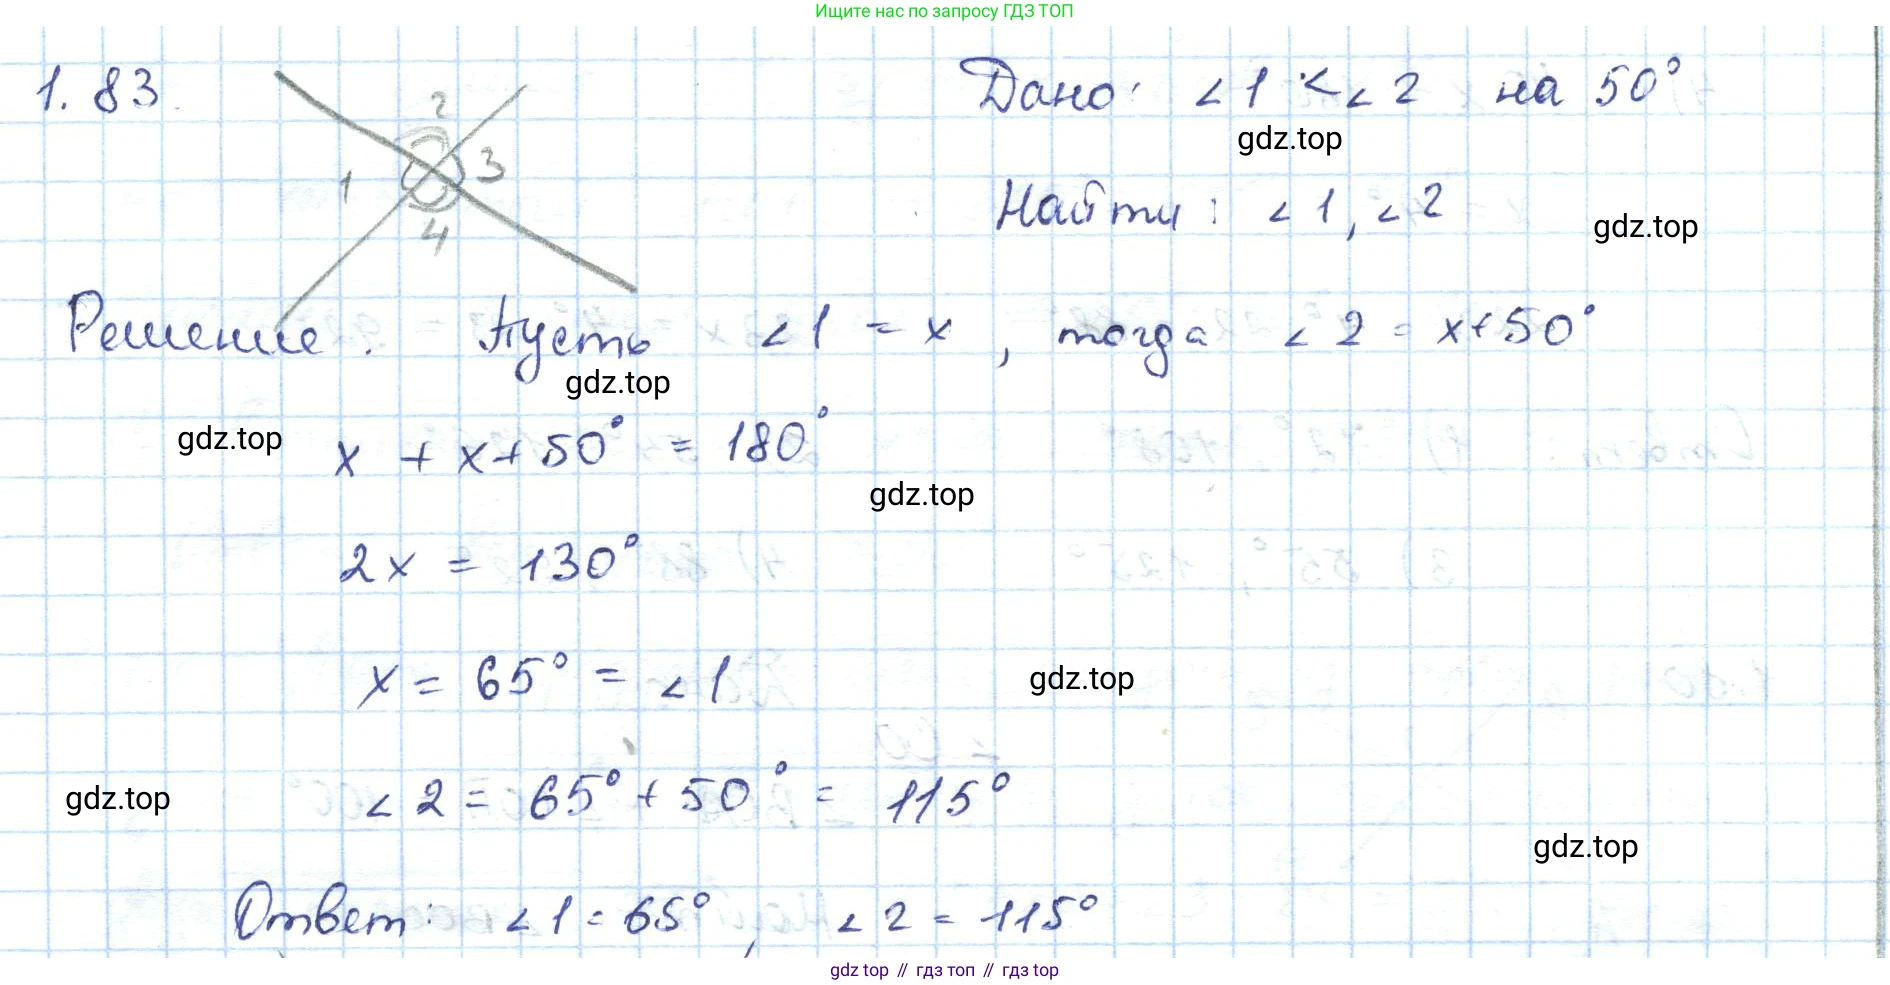 Ищите нас по запросу ГДЗ ТОП
1.83.
2
1
3
4
Дано: ∠1 < ∠2 на 50°
gdz.top
Найти: ∠1, ∠2
gdz.top
Решение. Пусть ∠1 = x, тогда ∠2 = x+50°
gdz.top
gdz.top
x + x+50° = 180°
gdz.top
2x = 130°
x = 65° = ∠1
gdz.top
∠2 = 65° + 50° = 115°
gdz.top
gdz.top
Ответ: ∠1 = 65°, ∠2 = 115°
gdz top // гдз топ // гдз top